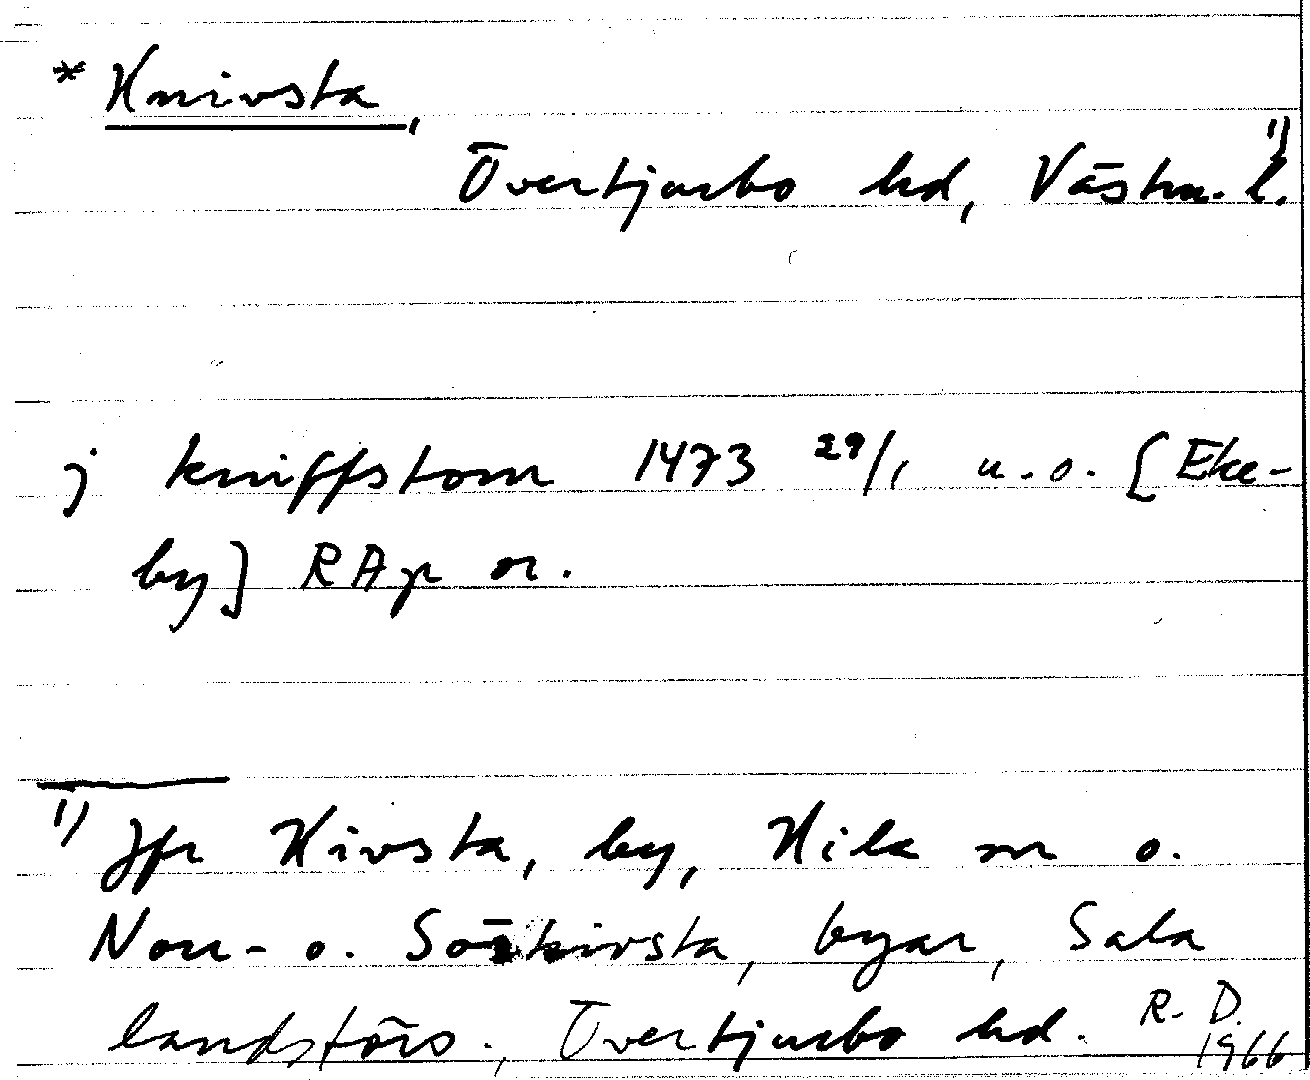 * Knivsta,
Övertjurbo hd, Västm. l. 1)
j kniffstom 1473 29/1 u.o. [Eke-
by] RAp or.
1) Jfr Kivsta, by, Kila sn o.
Norr- o. Sörkivsta, byar, Sala
landsförs., Övertjurbo hd. R. D.
1966